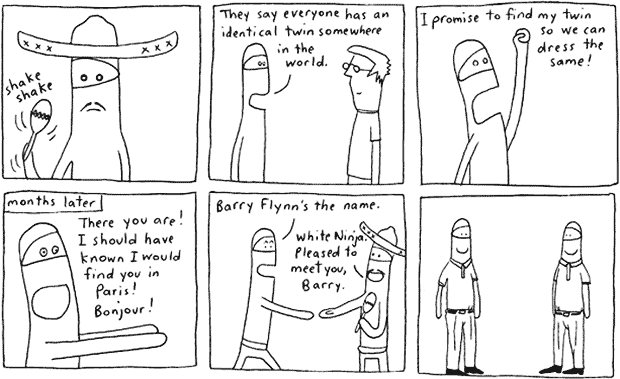 shake
shake
They say everyone has an
identical twin somewhere
in the
world.
I promise to find my twin
so we can
dress the
same!
months later
There you are!
I should have
known I would
find you in
Paris!
Bonjour!
Barry Flynn's the name.
White Ninja.
Pleased to
meet you,
Barry.